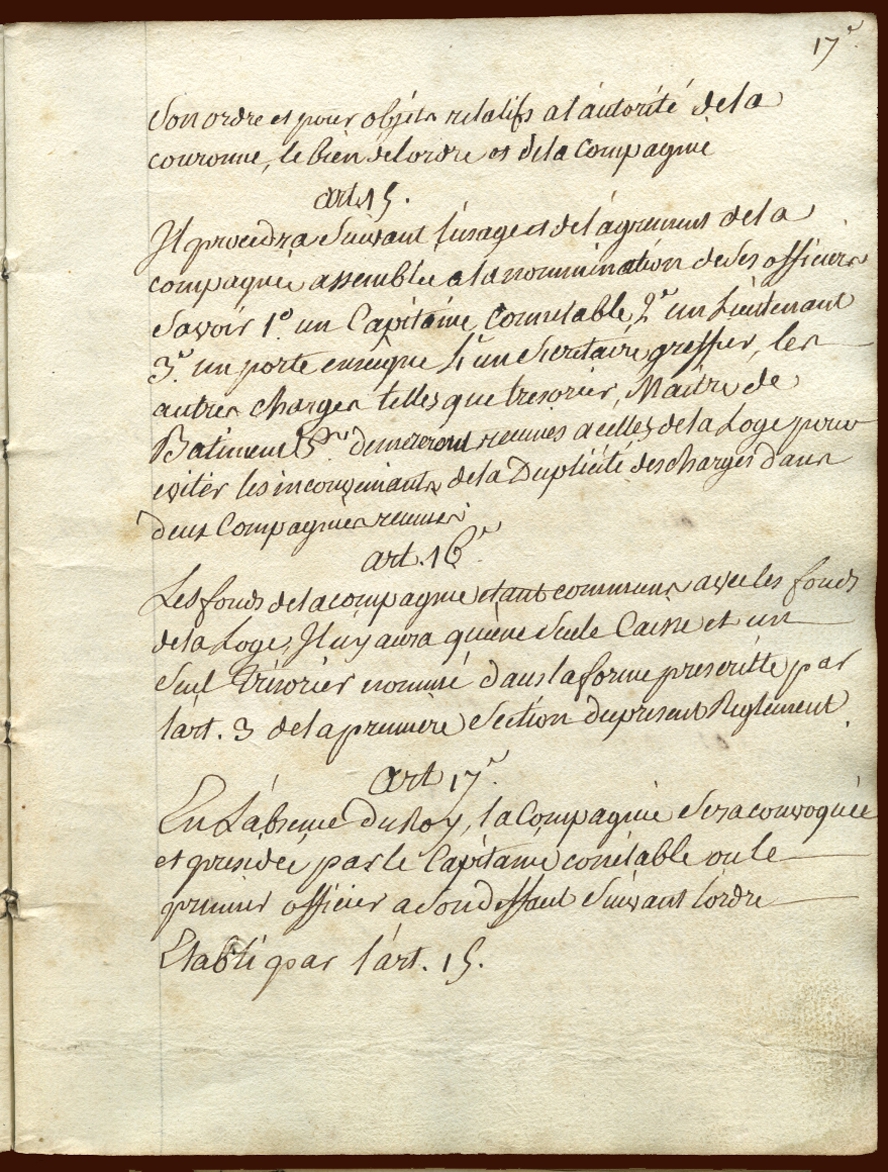 17e
Son ordre et pour objets relatifs a lautorité dela
couronne, le bien delordre et dela Compagnie
art. 15.
Il procedra Suivant l'usage et de l'agrement dela
compagnie assemblée a la nommination de ses officiers
Savoir 1° un Capitaine Connetable, 2° un Lieutenant
3° un porte enseigne 4° un Secretaire greffier, les
autres charges telles que tresorier, Maitre de
Batiment demereront reunies a celles de la Loge pour
eviter les inconveniants dela Duplicité des charges dans
deux Compagnies reunies
art. 16e
Les fonds dela compagnie etant communs avec les fonds
dela Loge, Il ny aura qu'une Seule Caisse et un
Seul Trésorier nommé dans la forme prescritte par
l'art. 3 dela premiere Section du present Reglement.
art 17e.
En L'absence Du Roy, la Compagnie Sera convoquée
et presidée par le Capitaine conétable ou le
premier officier a Son deffaut Suivant l'ordre
Etabli par l'art. 15.